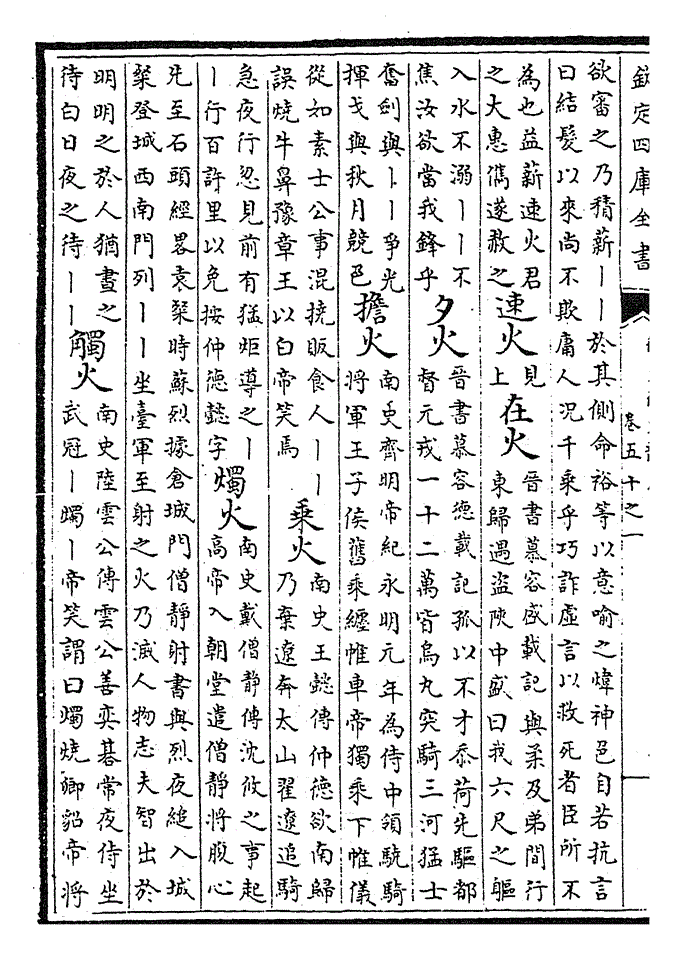 欽定四庫全書
卷五十之一
欲審之乃積薪丨丨於其側命裕等以意喻之煒神色自若抗言
曰結髮以來尚不欺庸人況千乘乎巧詐虛言以救死者臣所不
為也益薪速火君
之大惠儁遂赦之
速火
見
上
在火
晉書慕容盛載記與柔及弟間行
東歸遇盜陝中盛曰我六尺之軀
入水不溺丨丨不
焦汝欲當我鋒乎
夕火
晉書慕容德載記孤以不才忝荷先驅都
督元戎一十二萬皆烏丸突騎三河猛士
奮劍與丨丨爭光
揮戈與秋月競色
擔火
南史齊明帝紀永明元年為侍中領驍騎
將軍王子侯舊乘纏帷車帝獨乘下帷儀
從如素士公事混撓販食人丨丨
誤燒牛鼻豫章王以白帝笑焉
乘火
南史王懿傳仲德欲南歸
乃棄遼奔太山翟遼追騎
急夜行忽見前有猛炬導之丨
丨行百許里以免按仲德懿字
燭火
南史戴僧靜傳沈攸之事起
高帝入朝堂遣僧靜將腹心
先至石頭經畧袁粲時蘇烈據倉城門僧靜射書與烈夜縋入城
粲登城西南門列丨丨坐臺軍至射之火乃滅人物志夫智出於
明明之於人猶晝之
待白日夜之待丨丨
觸火
南史陸雲公傳雲公善弈碁常夜侍坐
武冠丨燭丨帝笑謂曰燭燒卿貂帝將